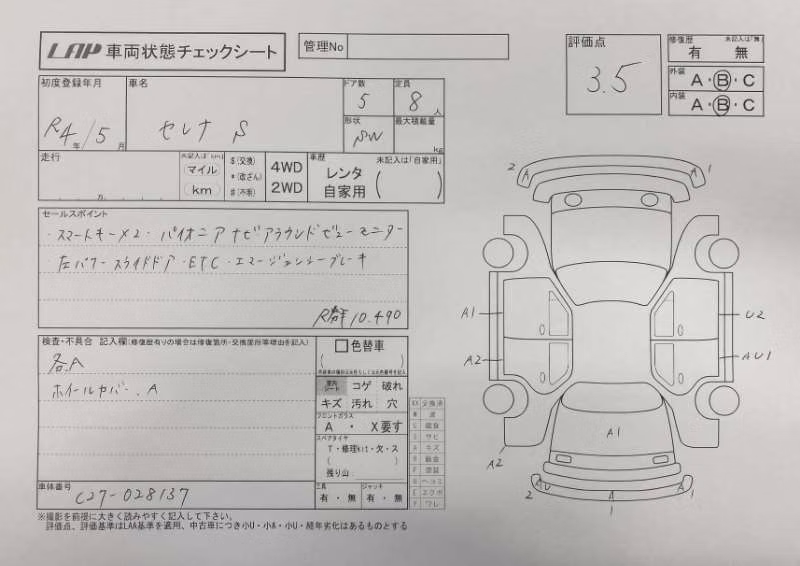 LAP 車両状態チェックシート
管理No
評価点
3.5
修復歴 未記入は「無」
有 無
外装
A・B・C
内装
A・B・C
初度登録年月
R4年/5月
車名
セレナ S
ドア数
5
定員
8人
形状
SW
最大積載量
kg
走行
マイル
km
$(交換)
*(改ざん)
#(不明)
4WD
2WD
車歴 未記入は「自家用」
レンタ
自家用
セールスポイント
・スマートキー×2・パイオニアナビアラウンドビューモニター
左パワースライドドア・ETC・エマージェンシーブレーキ
R群 10.490
検査・不具合 記入欄(修復歴有りの場合は修復箇所・交換箇所等理由を記入)
各A
ホイールカバー、A
色替車
室内
シート
コゲ 破れ
キズ 汚れ 穴
フロントガラス
A ・ X要す
スペアタイヤ
T・修理kit・欠・ス
残り山:
工具
有・無
ジャッキ
有・無
車体番号
C27-028137
XX 交換済
W 波
C 腐食
S サビ
A キズ
B 鈑金
P 塗装
U ヘコミ
E エクボ
Y ワレ
2
A
A
1
A1
U2
A2
AU1
A1
A2
2
AU
A
1
A
1
※撮影を前提に大きく読みやすく記入して下さい。
評価点、評価基準はLAA基準を適用、中古車につき小U・小A・小U・経年劣化はあるものとする